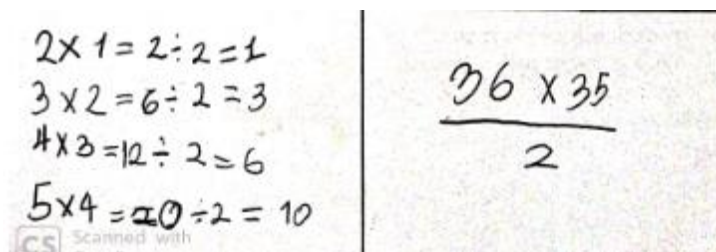 2 x 1 = 2 ÷ 2 = 1
3 x 2 = 6 ÷ 2 = 3
4 x 3 = 12 ÷ 2 = 6
5 x 4 = 20 ÷ 2 = 10
CS Scanned with
36 x 35
2